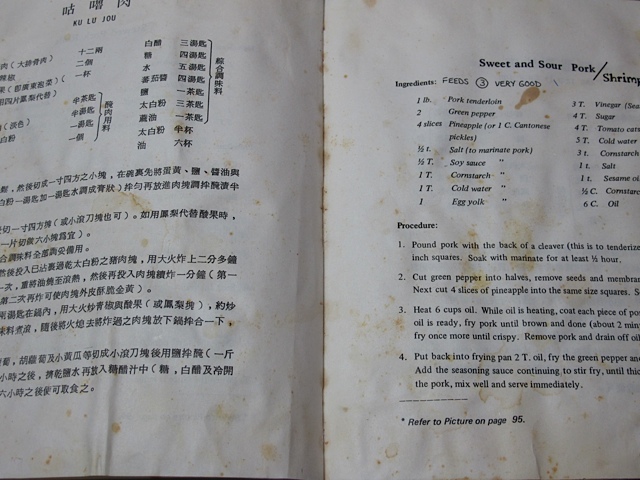 咕嚕肉
KU LU JOU
肉(大排骨肉) 十二兩
辣椒 二個
一杯
半茶匙
半湯匙
一湯匙
一個
醃肉用料
白醋 三湯匙
糖 四湯匙
水 五湯匙
蕃茄醬 四湯匙
鹽 一茶匙
太白粉 三茶匙
蔴油 一茶匙
太白粉 半杯
油 六杯
綜合調味料
鬆,然後切成一寸四方之小塊,在碗裏先將蛋黃、鹽、醬油與
白粉一湯匙加一湯匙水調成膏狀)拌勻再放進肉塊調拌醃漬半
切一寸四方塊(或小滾刀塊也可)。如用鳳梨代替酸果時,
一片切做六小塊為宜)。
合調味料全部調妥備用。
然後投入已沾裹過乾太白粉之豬肉塊,用大火炸上二分多鐘
一次,重將油燒至滾熱,然後再投入肉塊續炸一分鐘(第一
第二次再炸可使肉塊外皮酥脆金黃)。
兩湯匙在鍋內,用大火炒青椒與酸果(或鳳梨塊),約炒
味料煮滾,隨後將火熄去將炸過之肉塊放下鍋拌合一下,
蔔,胡蘿蔔及小黃瓜等切成小滾刀塊後用鹽拌醃(一斤
小時之後,擠乾鹽水再放入糖醋汁中(糖,白醋及冷開
六小時之後便可取食之。
Sweet and Sour Pork/Shrimp
Ingredients: FEEDS ③ VERY GOOD
1 lb. Pork tenderloin
2 Green pepper
4 slices Pineapple (or 1 C. Cantonese
pickles)
½ t. Salt (to marinate pork)
½ T. Soy sauce "
1 T. Cornstarch "
1 T. Cold water "
1 Egg yolk "
3 T. Vinegar (Sea
4 T. Sugar
4 T. Tomato cat
5 T. Cold water
3 t. Cornstarch
1 t. Salt
1 t. Sesame oil
½ C. Cornstarc
6 C. Oil
Procedure:
1. Pound pork with the back of a cleaver (this is to tenderize
inch squares. Soak with marinate for at least ½ hour.
2. Cut green pepper into halves, remove seeds and membran
Next cut 4 slices of pineapple into the same size squares. S
3. Heat 6 cups oil. While oil is heating, coat each piece of po
oil is ready, fry pork until brown and done (about 2 min
fry once more until crispy. Remove pork and drain off oil
4. Put back into frying pan 2 T. oil, fry the green pepper and
Add the seasoning sauce continuing to stir fry, until thic
the pork, mix well and serve immediately.
* Refer to Picture on page 95.